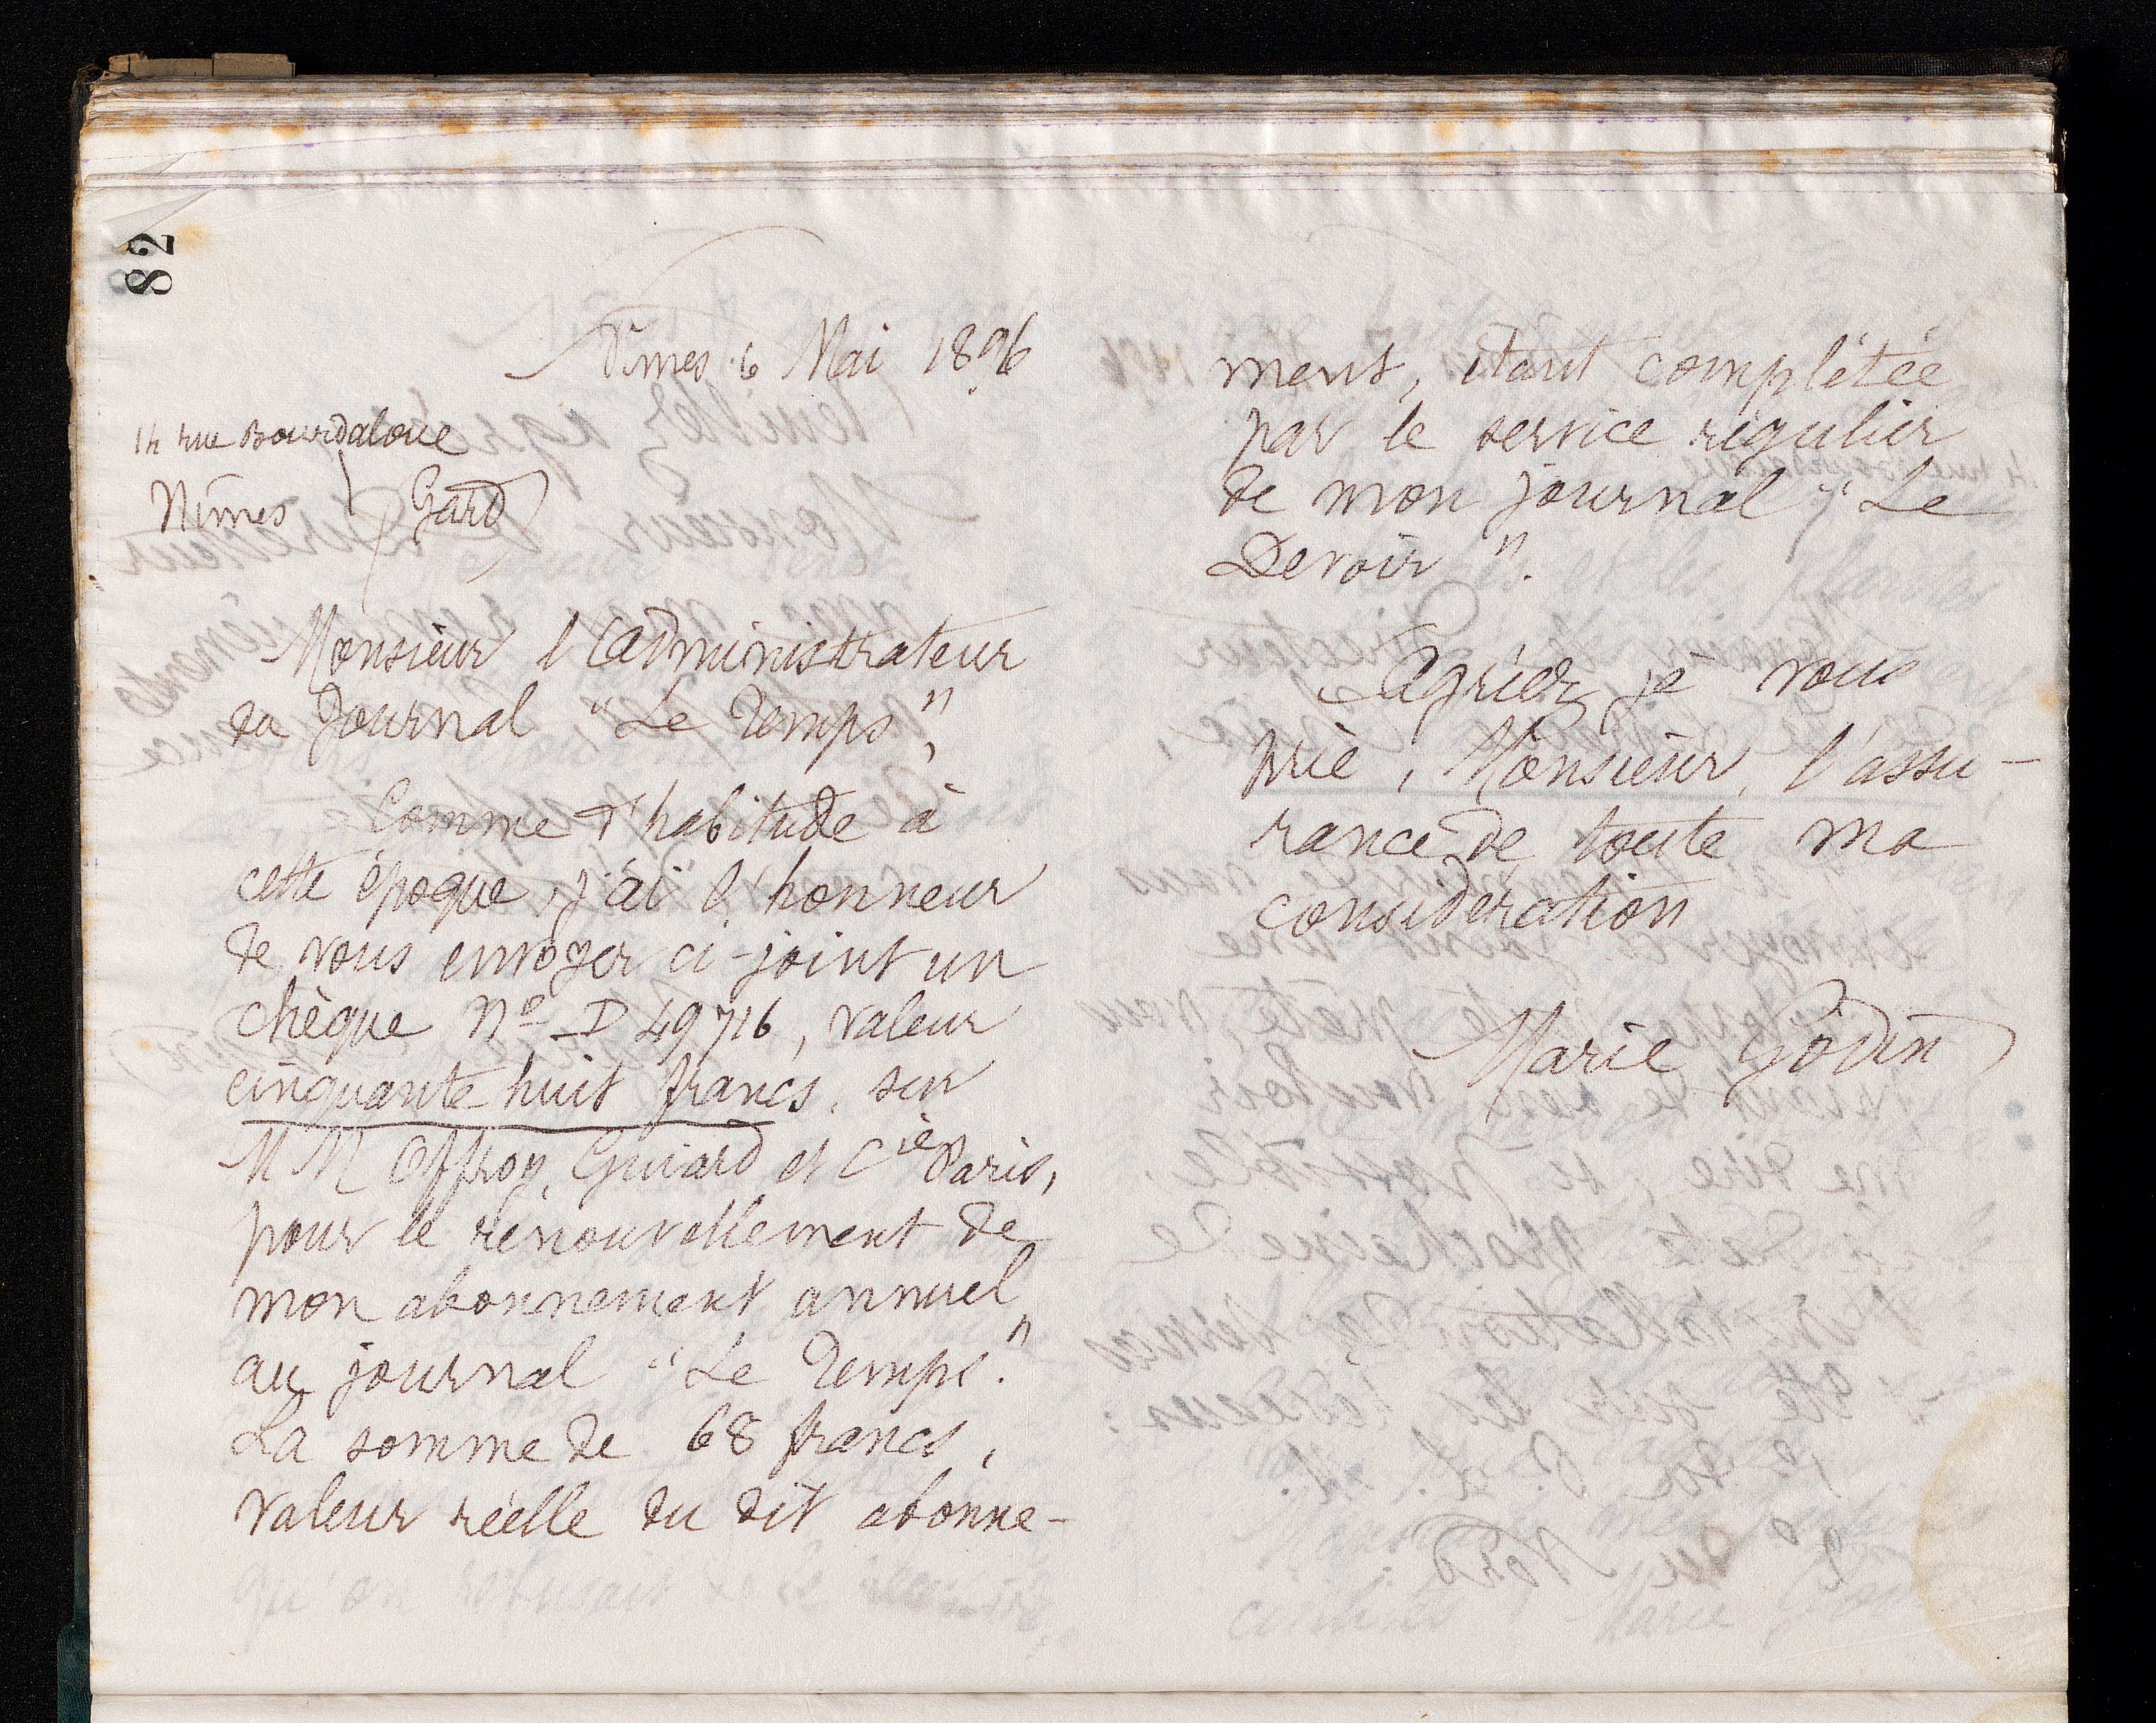 82
Nîmes 6 Mai 1896
14 rue Bourdaloue
Nîmes Gard
Monsieur l'administrateur
du Journal "Le Temps",
Comme d'habitude à
cette époque, j'ai l'honneur
de vous envoyer ci-joint un
chèque No D 49716, valeur
cinquante-huit francs, sur
MM Offroy, Guiard et Cie Paris,
pour le renouvellement de
mon abonnement annuel
au journal "Le Temps."
La somme de 68 francs,
valeur réelle du dit abonne-
ment, étant complétée
par le service régulier
de mon journal "Le
Devoir".
Agréez, je vous
prie, Monsieur, l'assu-
rance de toute ma
considération
Marie Godin